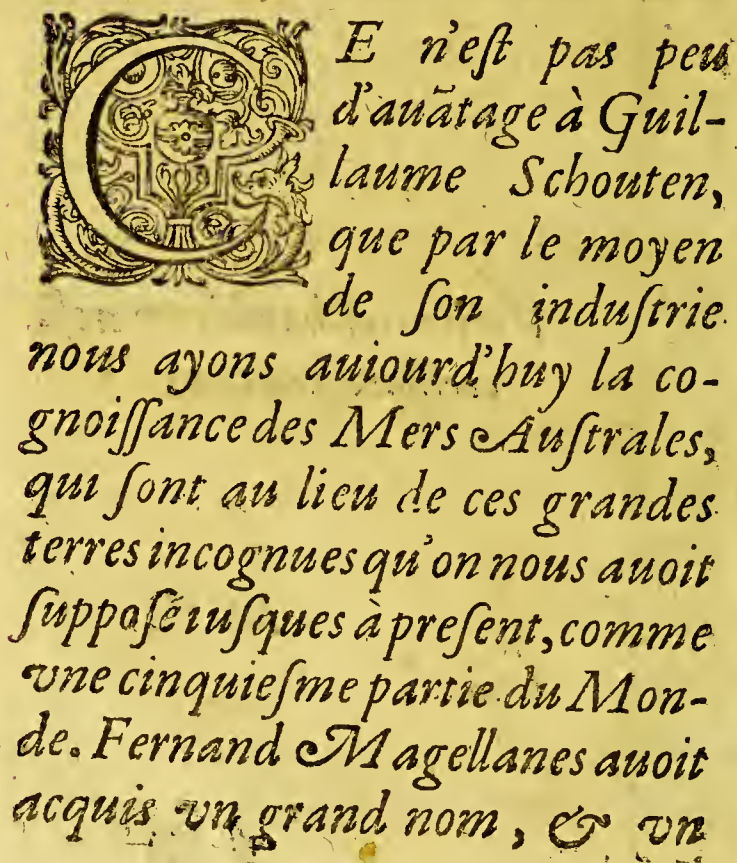 CE n'eſt pas peu
d'auãtage à Guil-
laume Schouten,
que par le moyen
de ſon induſtrie
nous ayons auiourd'huy la co-
gnoiſſance des Mers Auſtrales,
qui ſont au lieu de ces grandes
terres incognues qu'on nous auoit
ſuppoſé iuſques à preſent, comme
vne cinquieſme partie du Mon-
de. Fernand Magellanes auoit
acquis vn grand nom, & vn